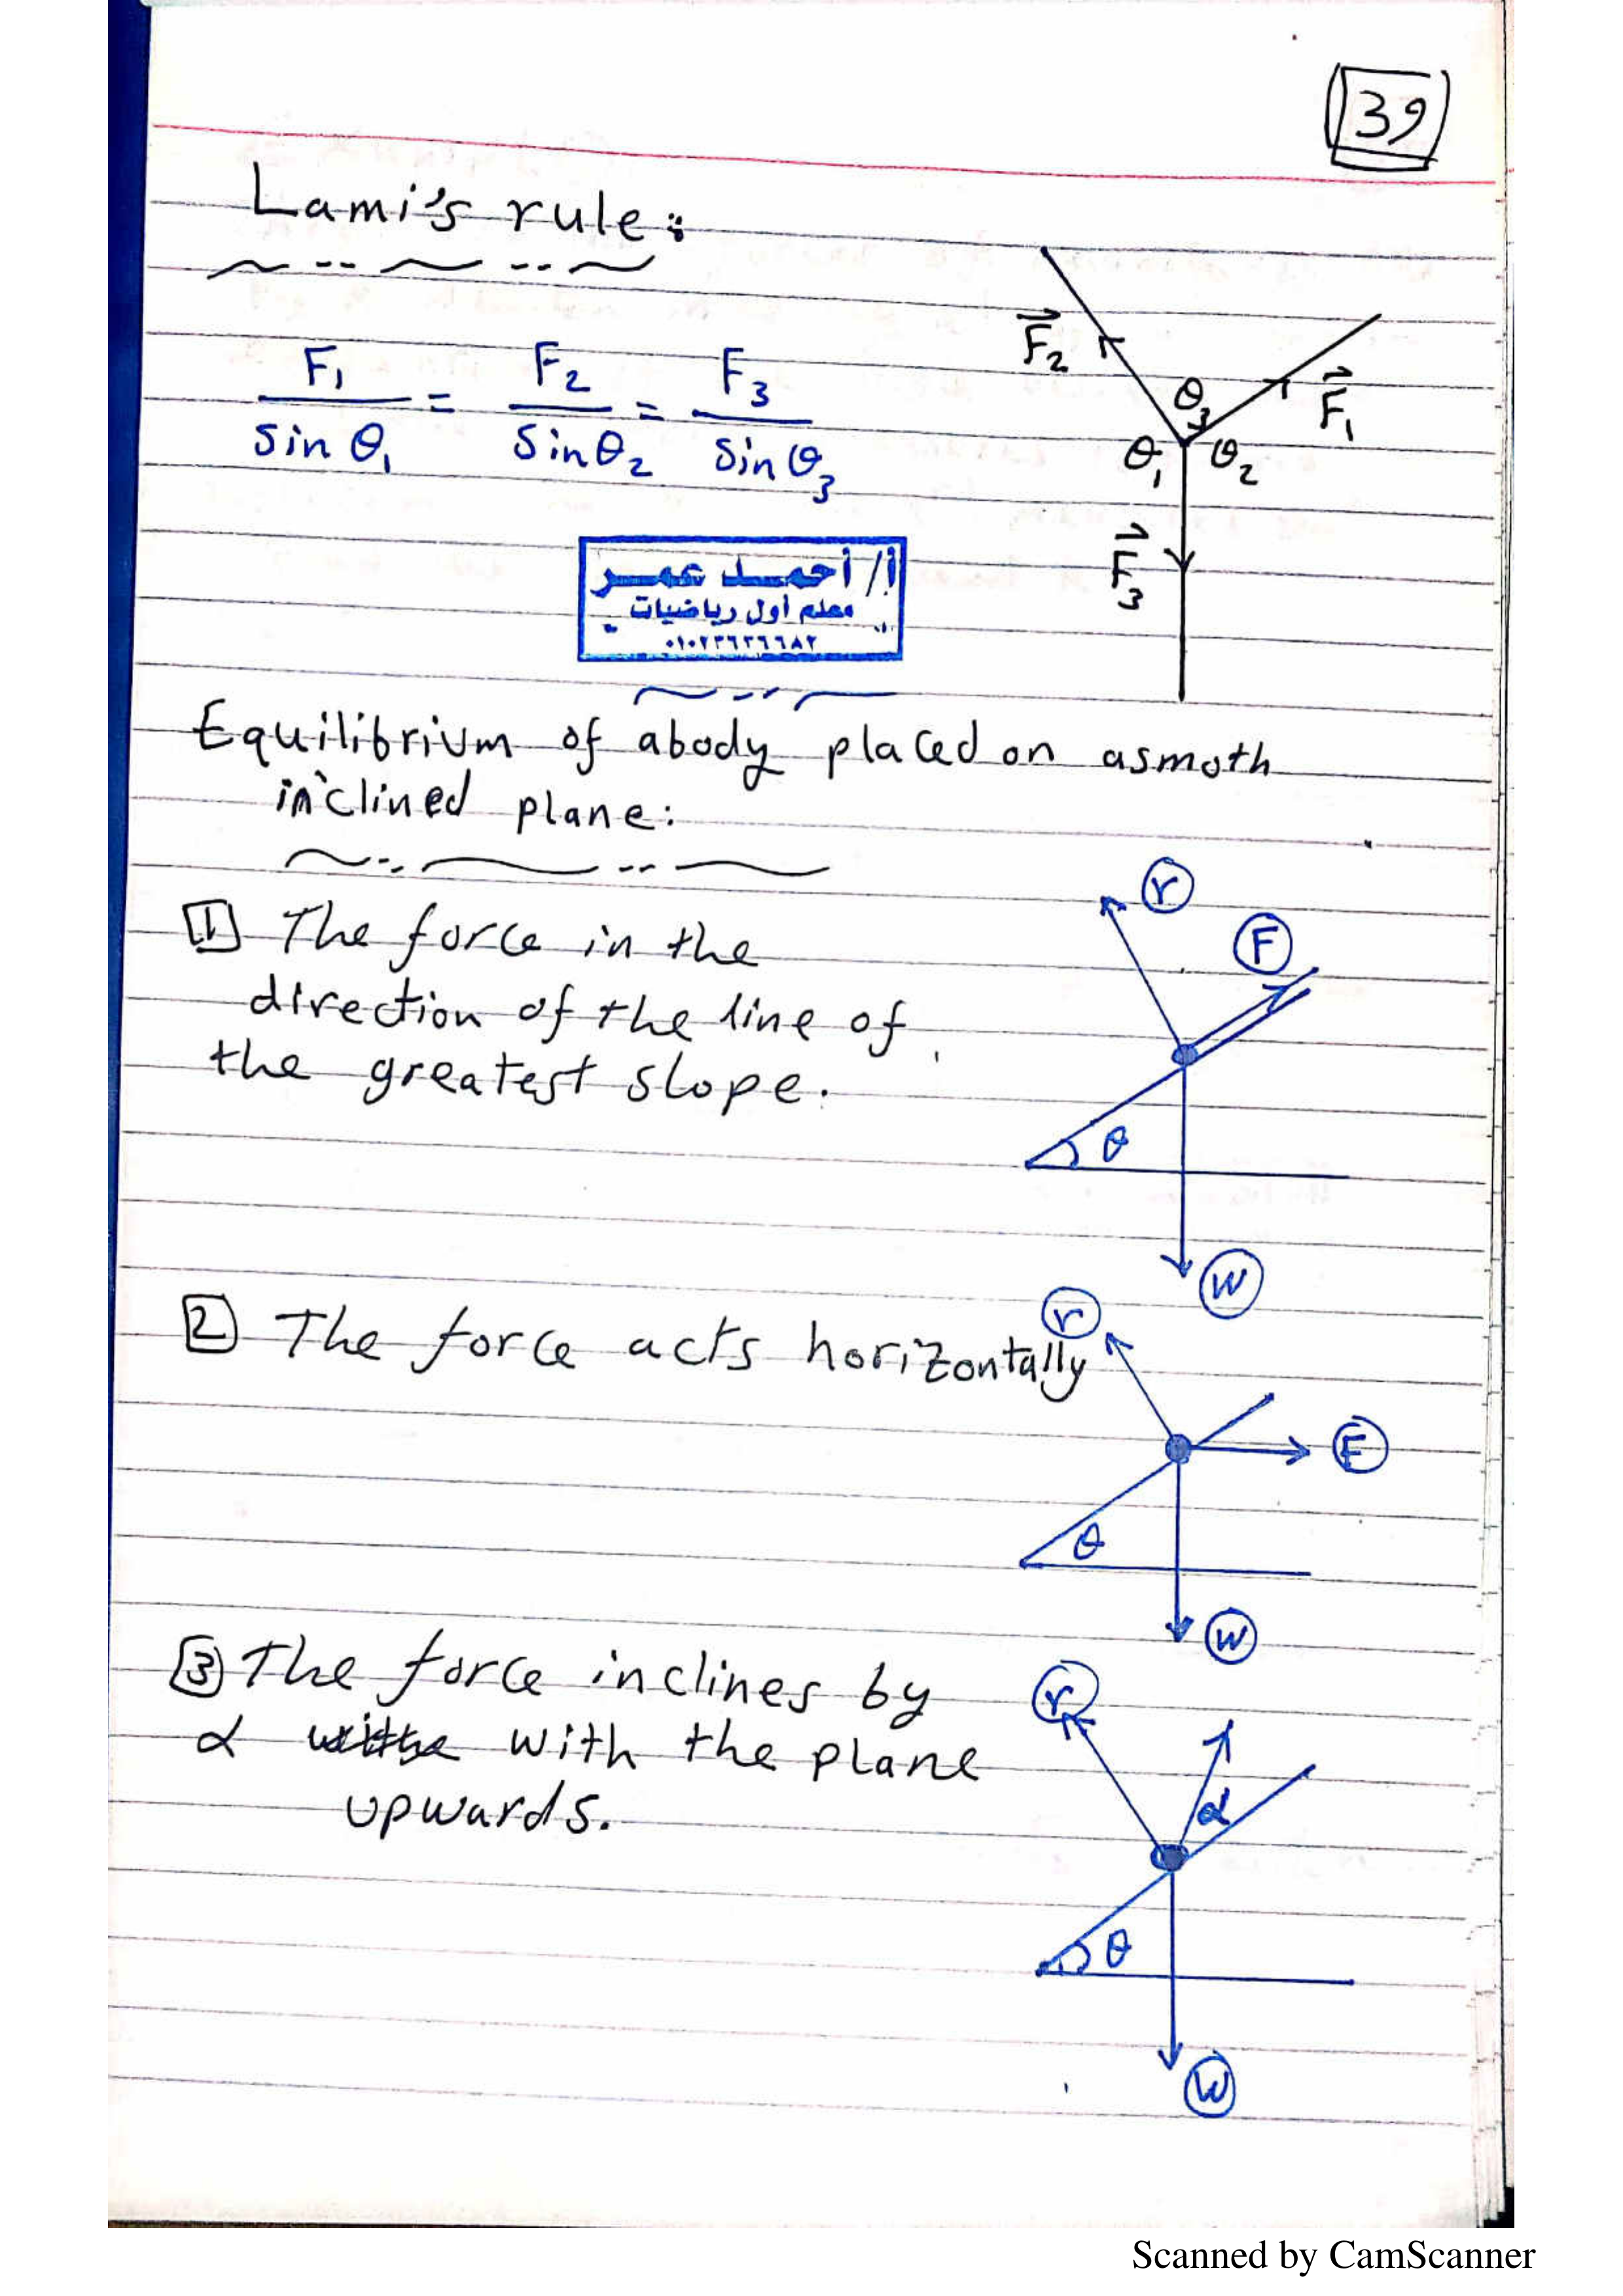 39
Lami's rule:
F₁/sin θ₁ = F₂/sin θ₂ = F₃/sin θ₃
F₂
F₁
θ₃
θ₁ θ₂
F₃
أ/ أحمد عمر
معلم أول رياضيات
Equilibrium of abody placed on asmoth
inclined plane:
1 The force in the
direction of the line of
the greatest slope.
r
F
θ
W
2 The force acts horizontally
r
F
θ
W
3 The force inclines by
α with the plane
upwards.
r
α
θ
W
Scanned by CamScanner